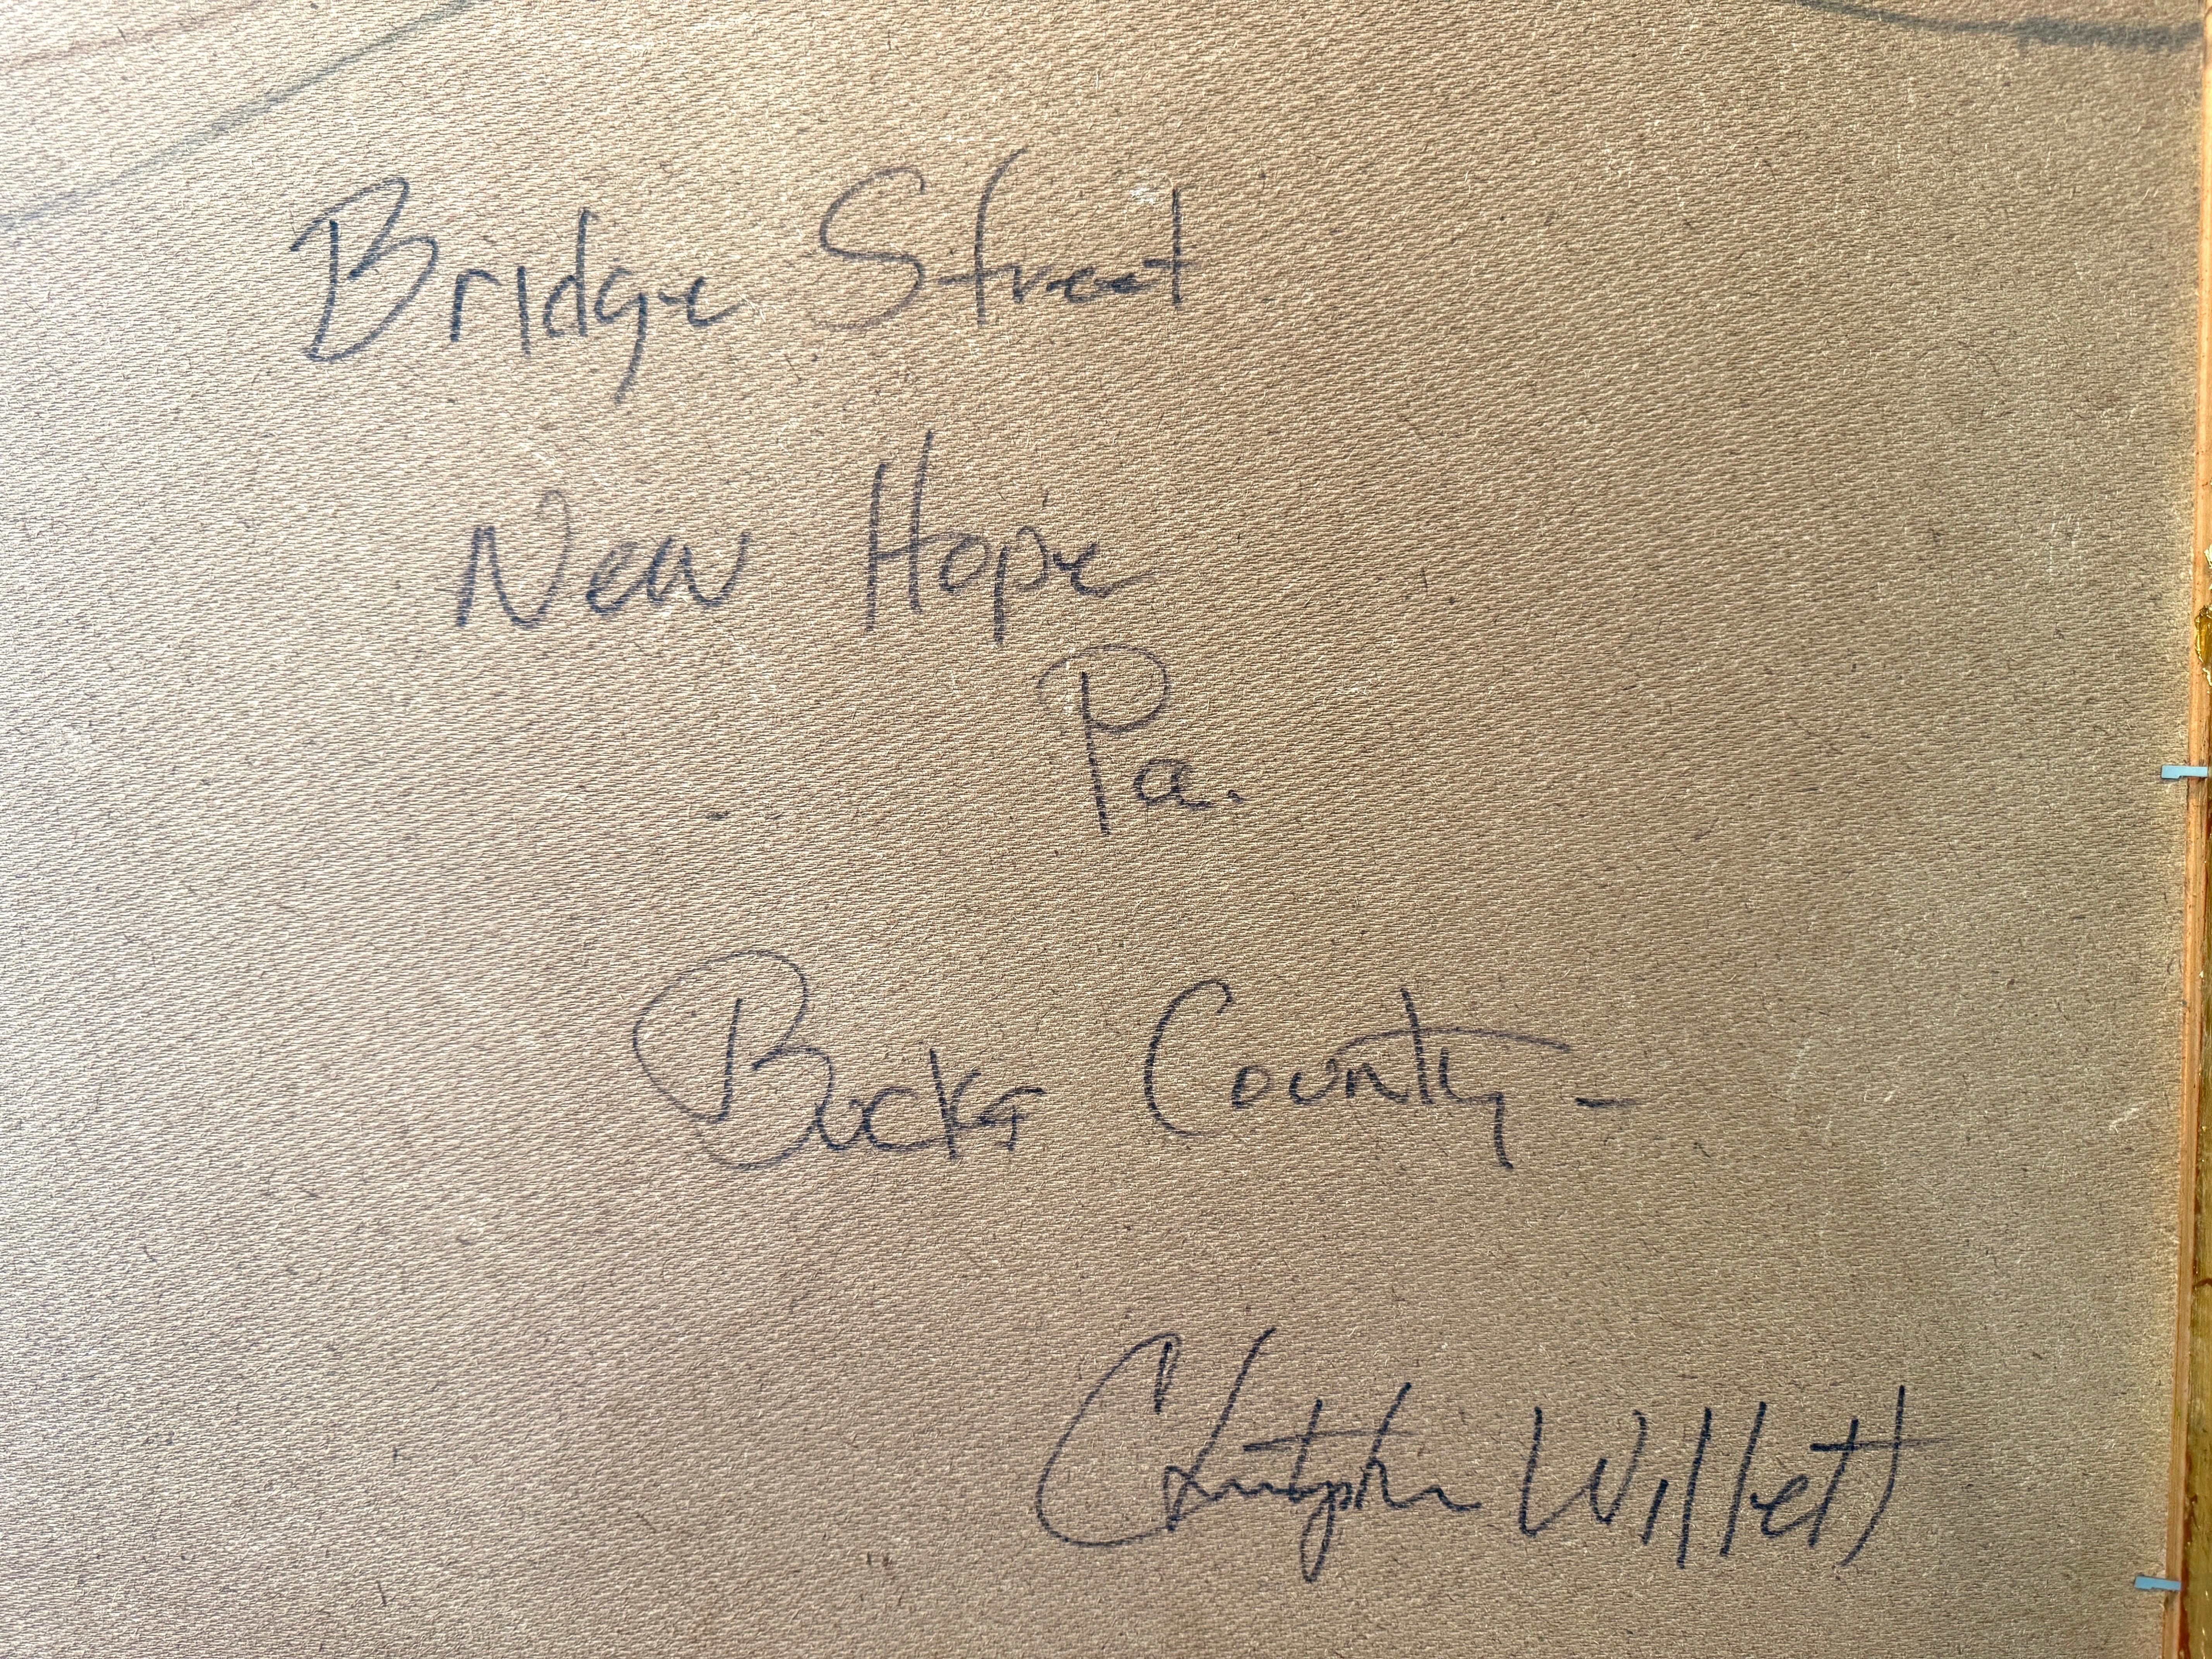 Bridge Street
New Hope
Pa.
Bucks County -
Christopher Willett